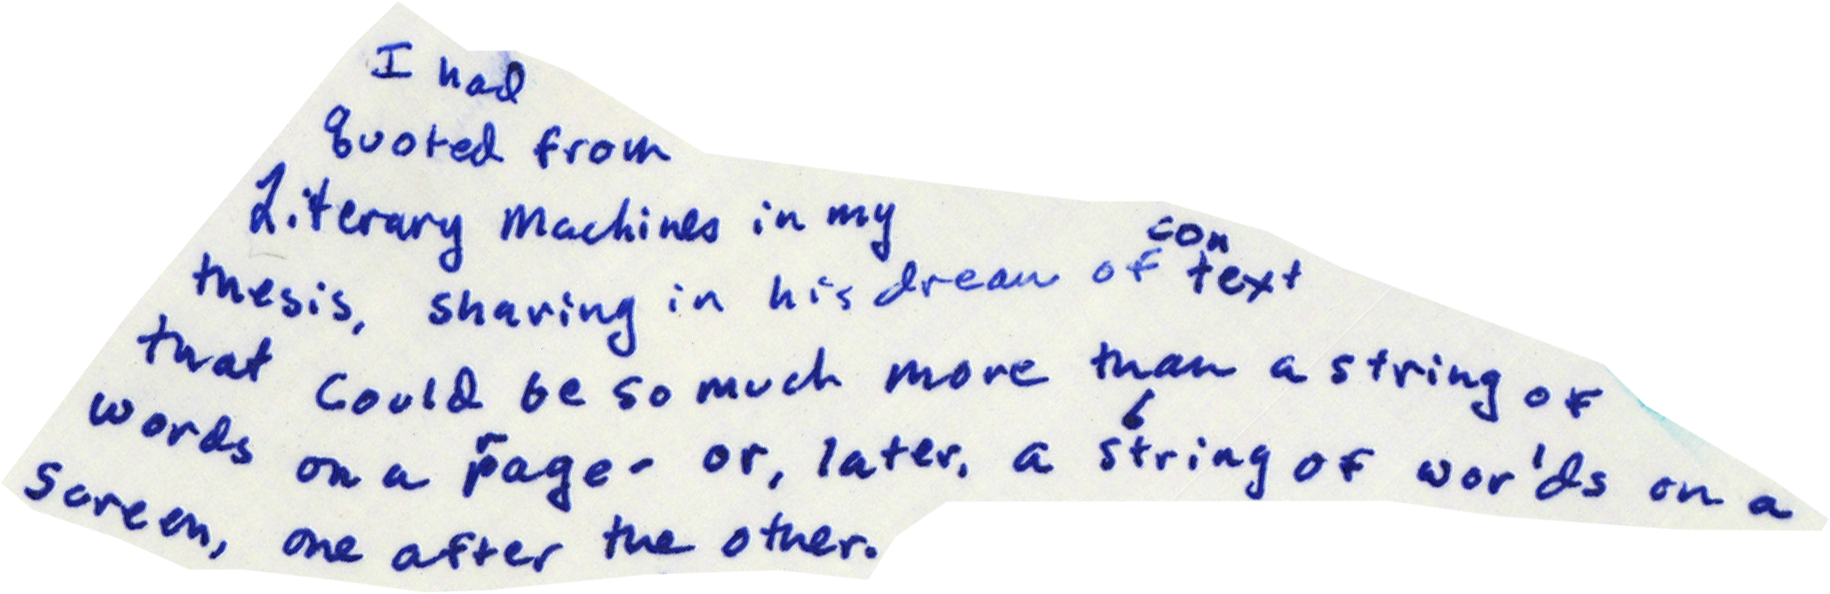 I had
quoted from
Literary Machines in my
con
thesis, sharing in his dream of text
that could be so much more than a string of
words on a page - or, later, a string of words on a
screen, one after the other.